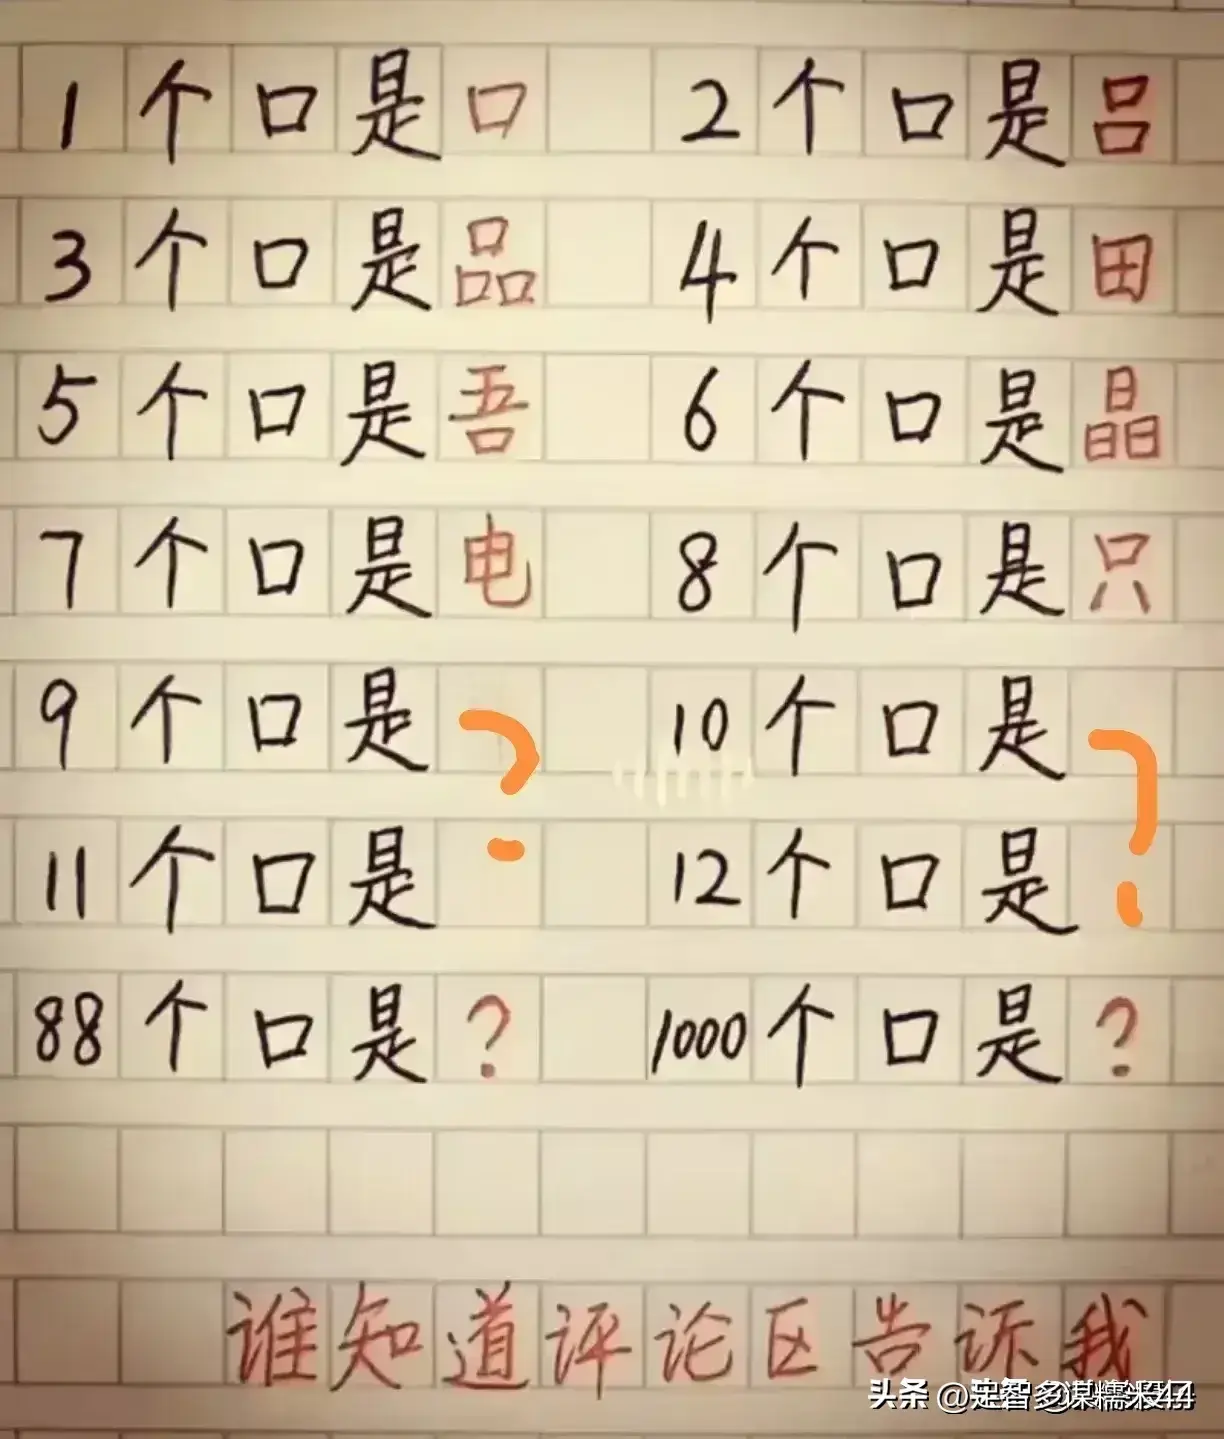 1个口是口 2个口是吕
3个口是品 4个口是田
5个口是吾 6个口是晶
7个口是电 8个口是只
9个口是? 10个口是?
11个口是 12个口是
88个口是? 1000个口是?
谁知道评论区告诉我
头条